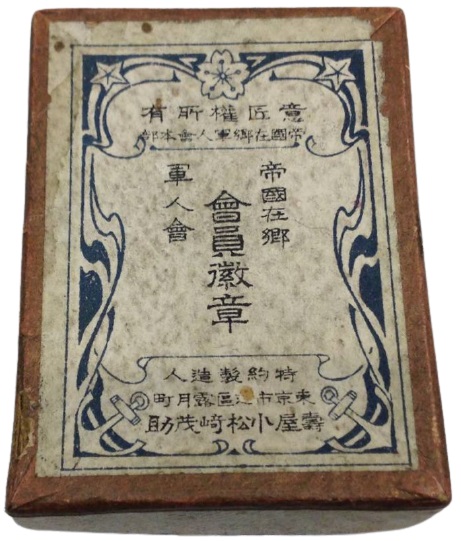 意匠權所有
帝國在鄉軍人會本部
帝國在鄉
軍人會
會員徽章
特約製造人
東京市芝區露月町
壽屋小松崎茂助